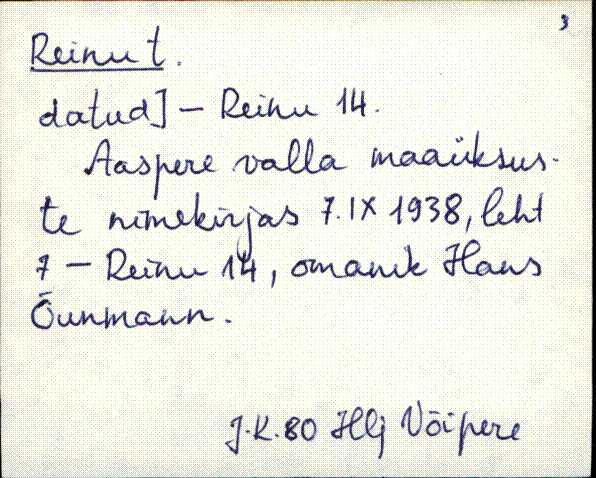 3
Reinu t.
datud] – Reinu 14.
Aaspere valla maaüksus-
te nimekirjas 7.IX 1938, leht
7 – Reinu 14, omanik Hans
Õunmann.
J.K.80 Hlj Võipere